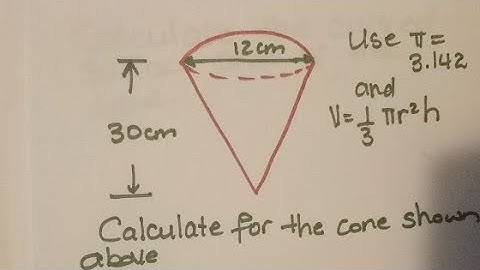 12cm
Use π=
3.142
and
V=1/3 πr²h
30cm
Calculate for the cone shown
above